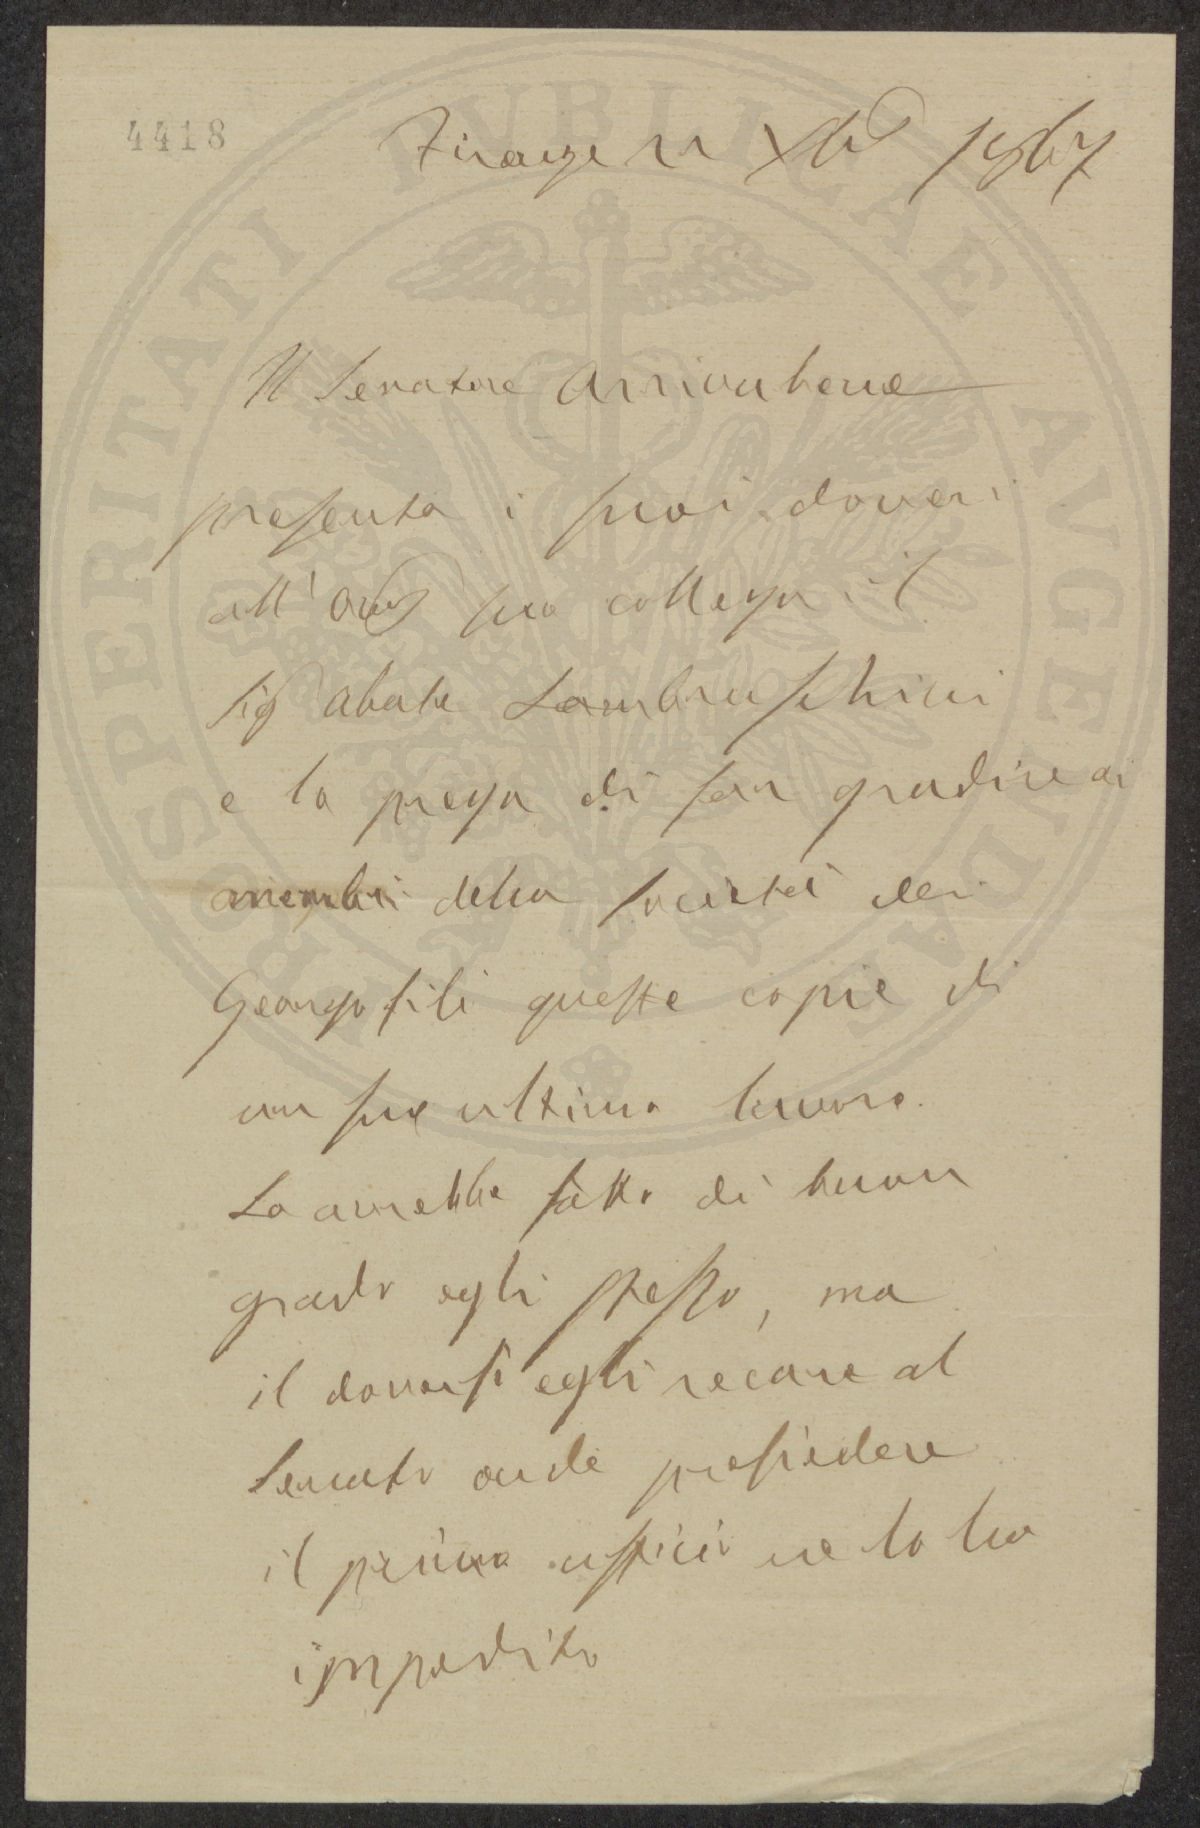 4418
Firenze 11 Xbre 1867
Il Senatore Arrivabene
presenta i suoi doveri
all' suo collega il
Sig Abate Lambruschini
e lo prega di far gradire ai
membri della Società dei
Georgofili queste copie di
un suo ultimo lavoro.
Lo avrebbe fatto di buon
grado egli stesso, ma
il doversi egli recare al
Senato onde presiedere
il primo ufficio ne lo ha
impedito
PROSPERITATI PVBLICAE AVGENDAE